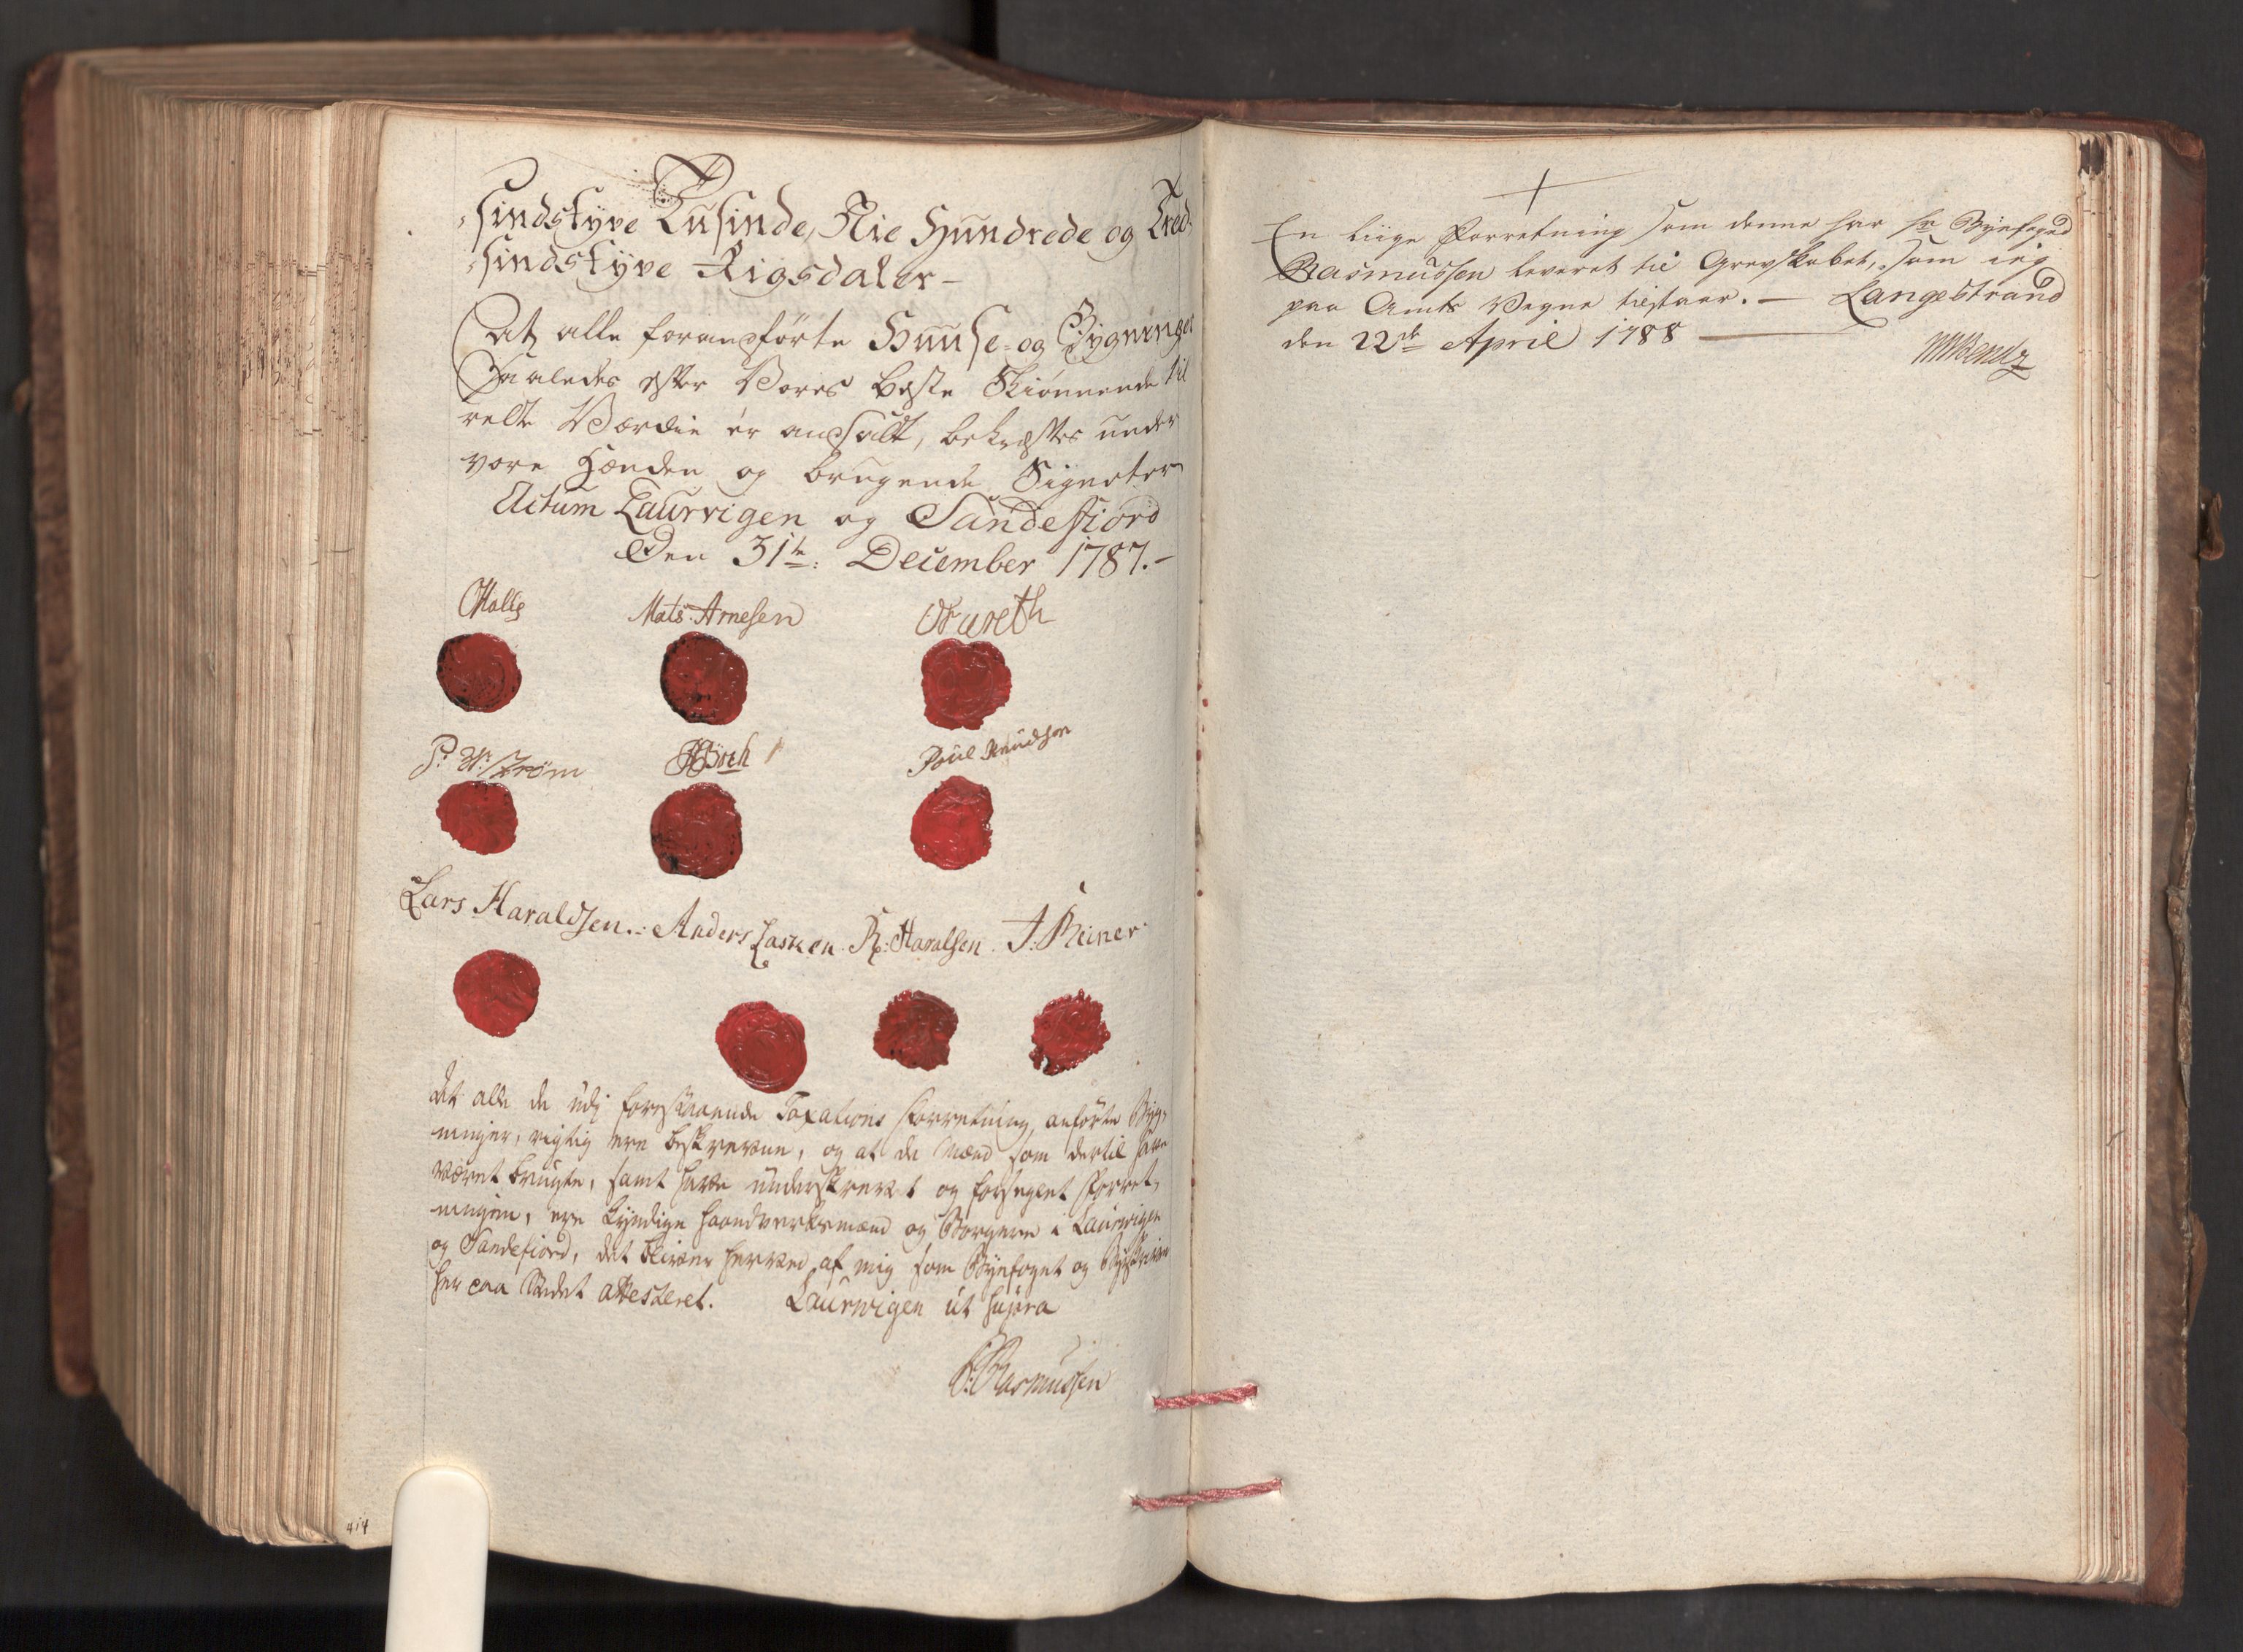 sindstÿve Tusinde, Nie Hundrede og Tred-
sindstÿve Rigsdaler-
At alle foranførte Huuse- og Bygninger
Saaledes efter Vores beste Skiønnende til
relte Værdie er ansadt, bekræftes under
vore Hænder og brugende Signeter
Actum Laurvigen og Sandefiord
Den 31te: December 1787.-
Mats Arnesen
Poul Knudsen
Lars Haraldsen. Anders Larsen. R: Haralsen. J: Reiner
At alle de udj forestaaende Taxations Forretning, anførte Byg-
ninger, rigtig ere beskrevene, og at de Mænd som dertil have
været brugte, samt have underskrevet og forseglet Forret-
ningen, ere kyndige Haandverksmænd og Borgere i Laurwigen
og Sandefiord, det bliver herved af mig som Byefoget og Byeskriver
her paa Stedet attesteret. Laurwigen ut supra
Rasmussen
En liige Forretning som denne har Hr Byefoged
Rasmussen leveret til Grevskabet, som ieg
paa Amts Vegne tilstaar. — Langestrand
den 22de April 1788
MWBentz
414